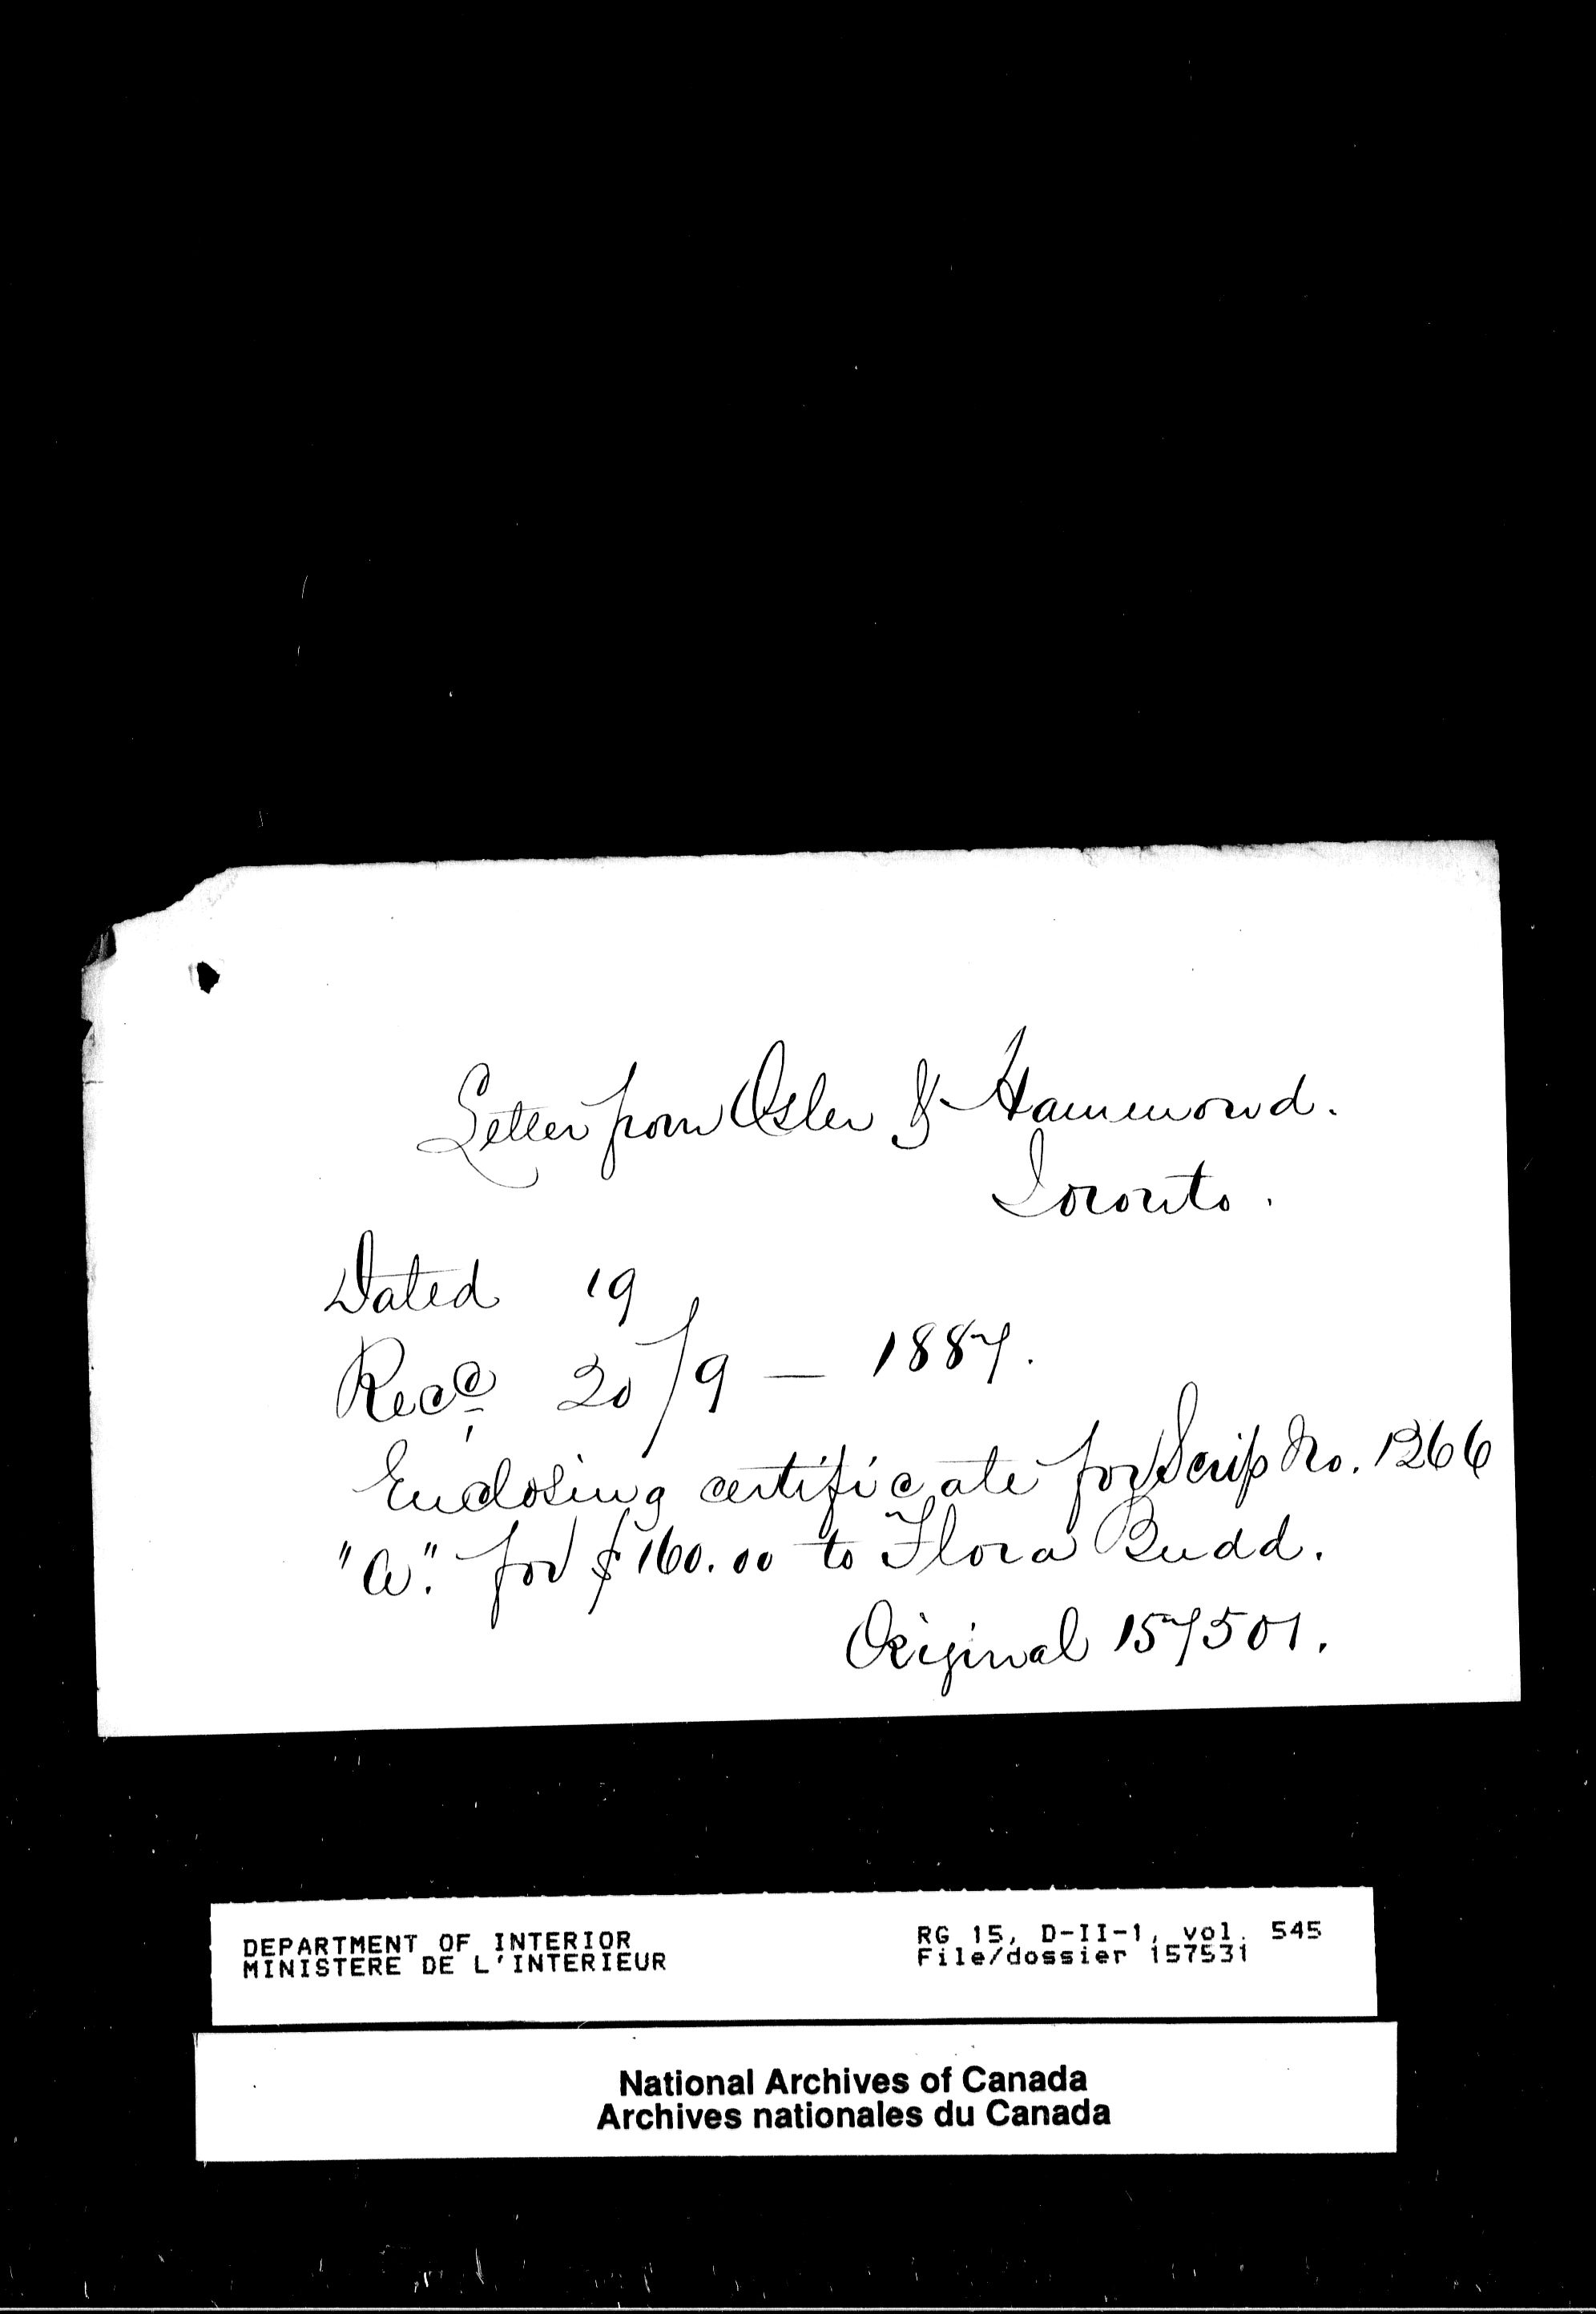 Letter from Osler & Hammond.
Toronto.
Dated 19
Recd 20/9 — 1887.
Enclosing certificate for Scrip No. 1266
"A". for $160.00 to Flora Budd.
Original 157501.
DEPARTMENT OF INTERIOR
MINISTERE DE L'INTERIEUR
RG 15, D-II-1, vol. 545
File/dossier 157531
National Archives of Canada
Archives nationales du Canada